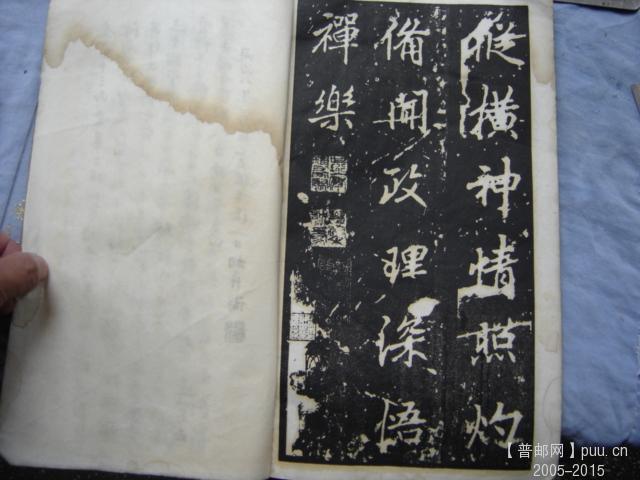 縱橫神情照灼
備聞政理深悟
禪樂
【普邮网】puu.cn
2005-2015